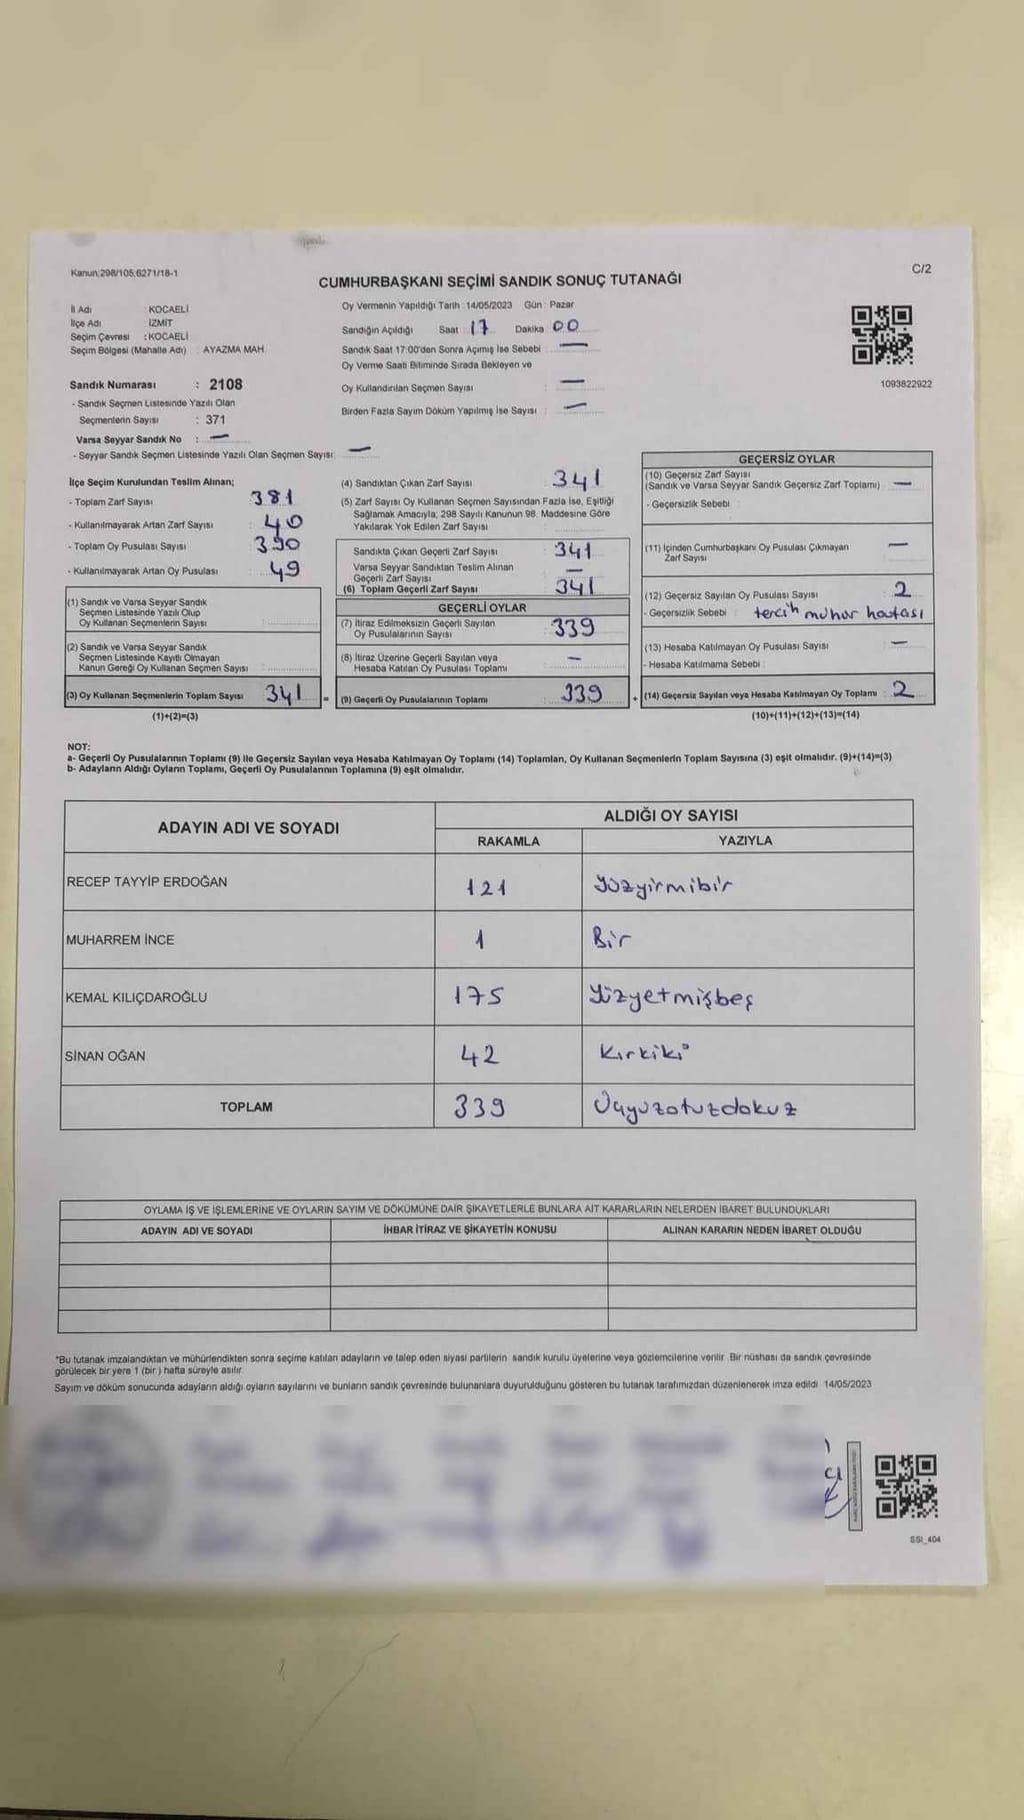 Kanun:298/105,6271/18-1
C/2
CUMHURBAŞKANI SEÇİMİ SANDIK SONUÇ TUTANAĞI
İl Adı : KOCAELİ
İlçe Adı : İZMİT
Seçim Çevresi : KOCAELİ
Seçim Bölgesi (Mahalle Adı) : AYAZMA MAH.
Sandık Numarası : 2108
- Sandık Seçmen Listesinde Yazılı Olan
Seçmenlerin Sayısı : 371
Varsa Seyyar Sandık No : —
- Seyyar Sandık Seçmen Listesinde Yazılı Olan Seçmen Sayısı: —
Oy Vermenin Yapıldığı Tarih : 14/05/2023 Gün : Pazar
Sandığın Açıldığı Saat 17 Dakika 00
Sandık Saat 17:00'den Sonra Açımış İse Sebebi : —
Oy Verme Saati Bitiminde Sırada Bekleyen ve
Oy Kullandırılan Seçmen Sayısı : —
Birden Fazla Sayım Döküm Yapılmış İse Sayısı : —
1093822922
İlçe Seçim Kurulundan Teslim Alınan;
- Toplam Zarf Sayısı : 381
- Kullanılmayarak Artan Zarf Sayısı : 40
- Toplam Oy Pusulası Sayısı : 390
- Kullanılmayarak Artan Oy Pusulası : 49
(1) Sandık ve Varsa Seyyar Sandık
Seçmen Listesinde Yazılı Olup
Oy Kullanan Seçmenlerin Sayısı
(2) Sandık ve Varsa Seyyar Sandık
Seçmen Listesinde Kayıtlı Olmayan
Kanun Gereği Oy Kullanan Seçmen Sayısı
(3) Oy Kullanan Seçmenlerin Toplam Sayısı 341
(1)+(2)=(3)
(4) Sandıktan Çıkan Zarf Sayısı : 341
(5) Zarf Sayısı Oy Kullanan Seçmen Sayısından Fazla İse, Eşitliği
Sağlamak Amacıyla; 298 Sayılı Kanunun 98. Maddesine Göre
Yakılarak Yok Edilen Zarf Sayısı :
Sandıkta Çıkan Geçerli Zarf Sayısı : 341
Varsa Seyyar Sandıktan Teslim Alınan
Geçerli Zarf Sayısı : —
(6) Toplam Geçerli Zarf Sayısı : 341
GEÇERLİ OYLAR
(7) İtiraz Edilmeksizin Geçerli Sayılan
Oy Pusulalarının Sayısı : 339
(8) İtiraz Üzerine Geçerli Sayılan veya
Hesaba Katılan Oy Pusulası Toplamı : —
= (9) Geçerli Oy Pusulalarının Toplamı : 339 +
GEÇERSİZ OYLAR
(10) Geçersiz Zarf Sayısı
(Sandık ve Varsa Seyyar Sandık Geçersiz Zarf Toplamı) : —
- Geçersizlik Sebebi :
(11) İçinden Cumhurbaşkanı Oy Pusulası Çıkmayan
Zarf Sayısı : —
(12) Geçersiz Sayılan Oy Pusulası Sayısı : 2
- Geçersizlik Sebebi : tercih mühür hatası
(13) Hesaba Katılmayan Oy Pusulası Sayısı : —
- Hesaba Katılmama Sebebi :
(14) Geçersiz Sayılan veya Hesaba Katılmayan Oy Toplamı : 2
(10)+(11)+(12)+(13)=(14)
NOT:
a- Geçerli Oy Pusulalarının Toplamı (9) ile Geçersiz Sayılan veya Hesaba Katılmayan Oy Toplamı (14) Toplamları, Oy Kullanan Seçmenlerin Toplam Sayısına (3) eşit olmalıdır. (9)+(14)=(3)
b- Adayların Aldığı Oyların Toplamı, Geçerli Oy Pusulalarının Toplamına (9) eşit olmalıdır.
ADAYIN ADI VE SOYADI
ALDIĞI OY SAYISI
RAKAMLA YAZIYLA
RECEP TAYYİP ERDOĞAN 121 yüzyirmibir
MUHARREM İNCE 1 Bir
KEMAL KILIÇDAROĞLU 175 Yüzyetmişbeş
SİNAN OĞAN 42 Kırkiki
TOPLAM 339 Üçyüzotuzdokuz
OYLAMA İŞ VE İŞLEMLERİNE VE OYLARIN SAYIM VE DÖKÜMÜNE DAİR ŞİKAYETLERLE BUNLARA AİT KARARLARIN NELERDEN İBARET BULUNDUKLARI
ADAYIN ADI VE SOYADI İHBAR İTİRAZ VE ŞİKAYETİN KONUSU ALINAN KARARIN NEDEN İBARET OLDUĞU
*Bu tutanak imzalandıktan ve mühürlendikten sonra seçime katılan adayların ve talep eden siyasi partilerin sandık kurulu üyelerine veya gözlemcilerine verilir. Bir nüshası da sandık çevresinde
görülecek bir yere 1 (bir) hafta süreyle asılır.
Sayım ve döküm sonucunda adayların aldığı oyların sayılarını ve bunların sandık çevresinde bulunanlara duyurulduğunu gösteren bu tutanak tarafımızdan düzenlenerek imza edildi 14/05/2023
SSI_404